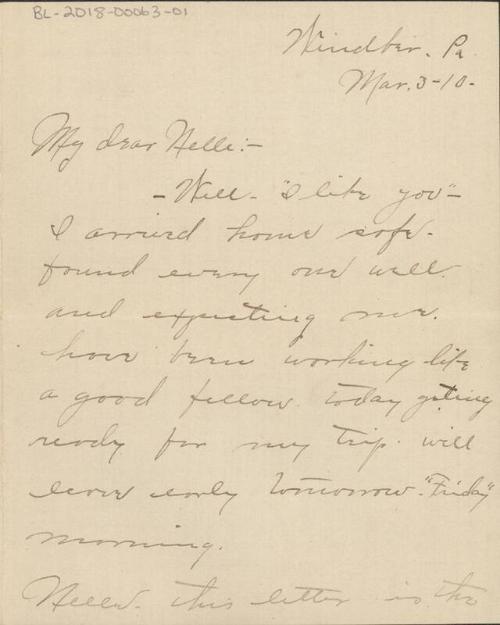 BL-2018-00063-01
Windber. Pa.
Mar. 3-10-
My dear Nelle:-
- Well - "I like you" -
I arrived home safe.
found every one well.
and expecting me.
have been working like
a good fellow. today geting
ready for my trip. will
leave early tomorrow. "Friday"
morning.
this letter is the